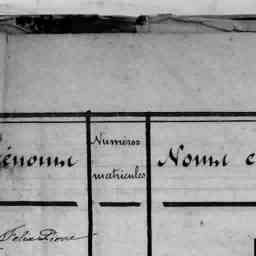 énoms Numéros Noms e
matricules
Felix Pierre